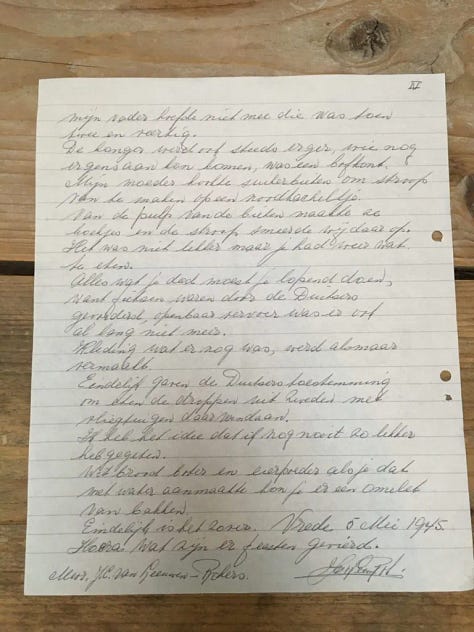 IV
mijn vader hoefde niet mee die was toen
twee en veertig.
De honger werd ook steeds erger, wie nog
ergens aan kon komen, was een bofkont.
Mijn moeder kookte suikerbieten om stroop
van te maken op een noodkacheltje.
Van de pulp van de bieten maakte ze
koekjes en de stroop smeerde wij daar op.
Het was niet lekker maar je had weer wat
te eten.
Alles wat je deed moest je lopend doen,
want fietsen waren door de Duitsers
gevorderd, openbaar vervoer was er ook
al lang niet meer.
Kleding wat er nog was, werd alsmaar
vermaakt.
Eindelijk gaven de Duitsers toestemming
om eten te droppen uit Zweden met
vliegtuigen daar vandaan.
Ik heb het idee dat ik nog nooit zo lekker
heb gegeten.
Wit brood boter en eierpoeder als je dat
met water aanmaakte kon je er een omelet
van bakken.
Eindelijk is het zover. Vrede 5 Mei 1945.
Hoera! Wat zijn er feesten gevierd.
Mevr. J.C. van Leeuwen-